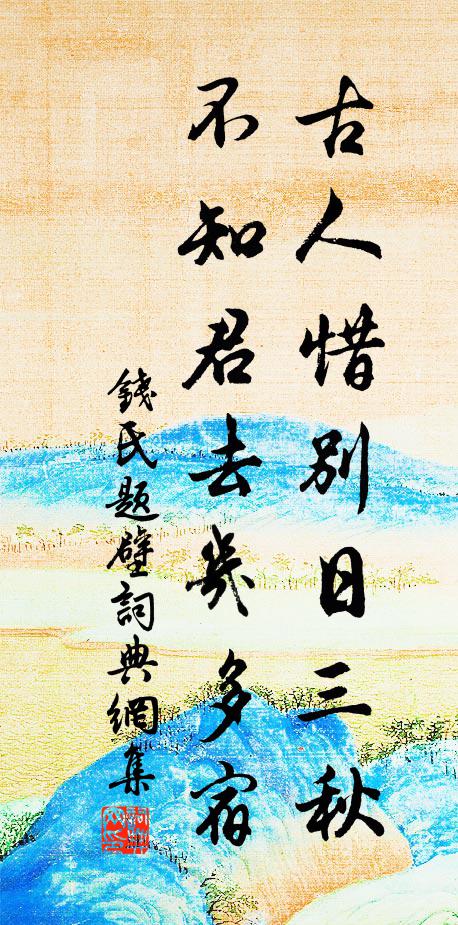 古人惜別日三秋
不知君去幾多宿
錢氏題壁詞典網集